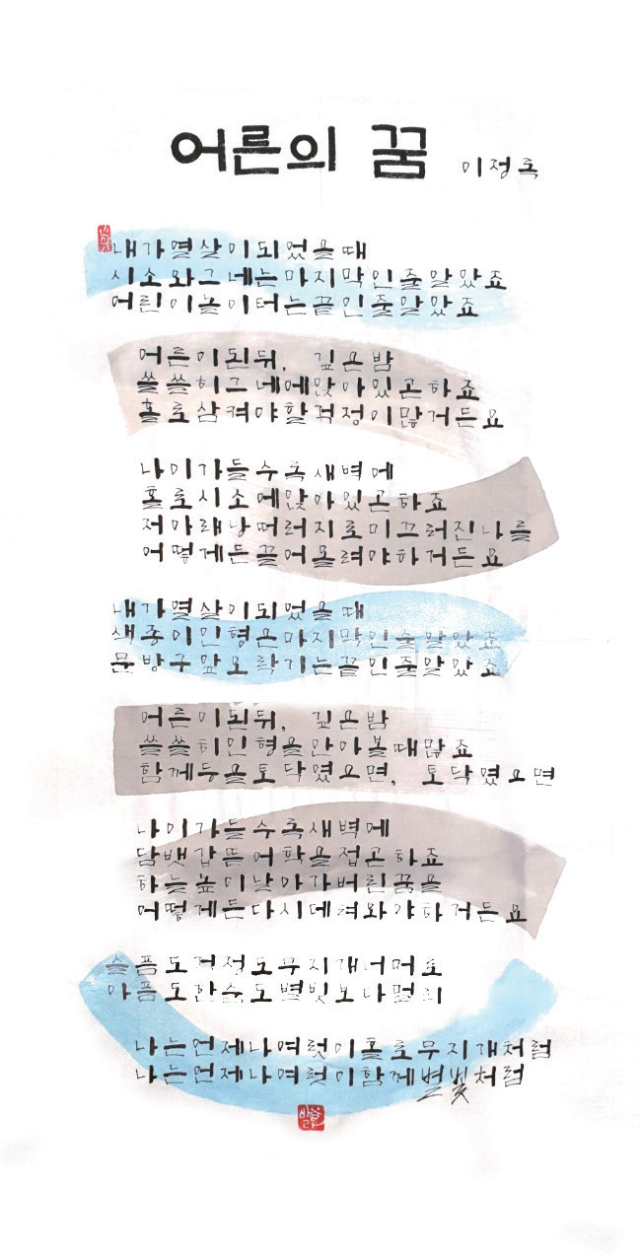 어른의 꿈 이정록
내가 열 살이 되었을 때
시소와 그네는 마지막인 줄 알았죠
어린이 놀이터는 끝인 줄 알았죠
어른이 된 뒤, 깊은 밤
쓸쓸히 그네에 앉아 있곤 하죠
홀로 삼켜야 할 걱정이 많거든요
나이가 들수록 새벽에
홀로 시소에 앉아 있곤 하죠
저 아래 낭떠러지로 미끄러진 나를
어떻게든 끌어올려야 하거든요
내가 열 살이 되었을 때
색종이 인형은 마지막인 줄 알았죠
문방구 앞 오락기는 끝인 줄 알았죠
어른이 된 뒤, 깊은 밤
쓸쓸히 인형을 안아볼 때 많죠
함께 등을 토닥였으면, 토닥였으면
나이가 들수록 새벽에
담뱃갑 뜯어 학을 접곤 하죠
하늘 높이 날아가버린 꿈을
어떻게든 다시 데려와야 하거든요
슬픔도 걱정도 무지개 너머로
아픔도 한숨도 별빛보다 멀리
나는 언제나 여럿이 홀로 무지개처럼
나는 언제나 여럿이 함께 별빛처럼